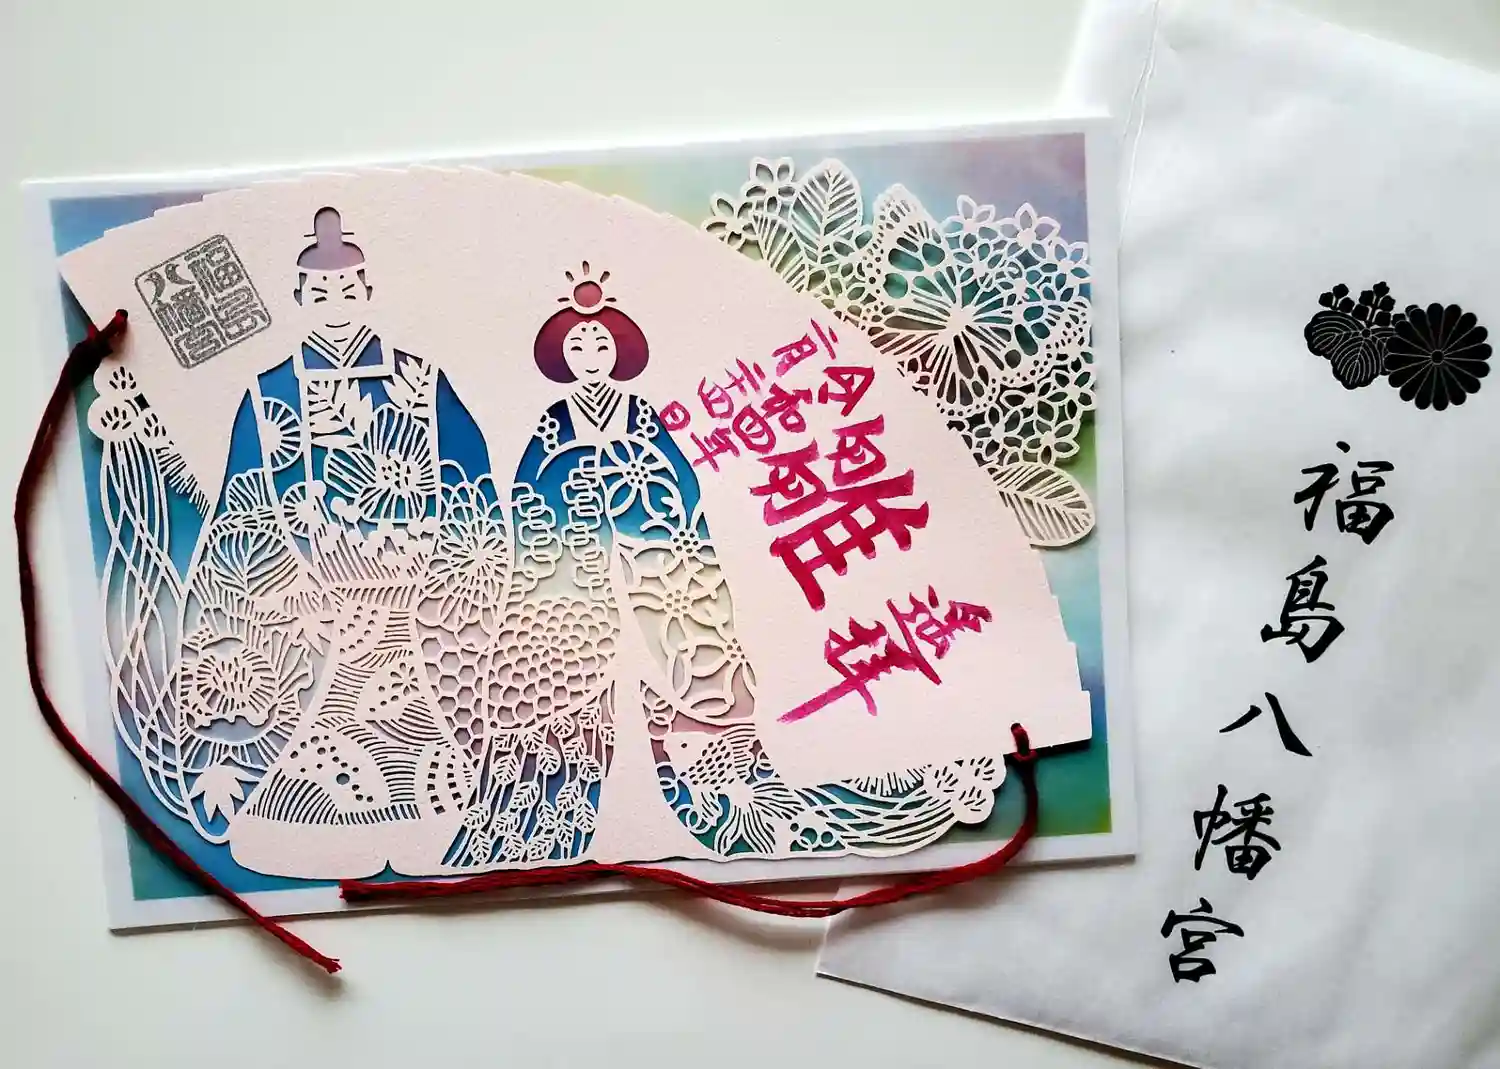 遥拝
雛
令和四年
二月二十四日
福島
八幡宮
福島八幡宮